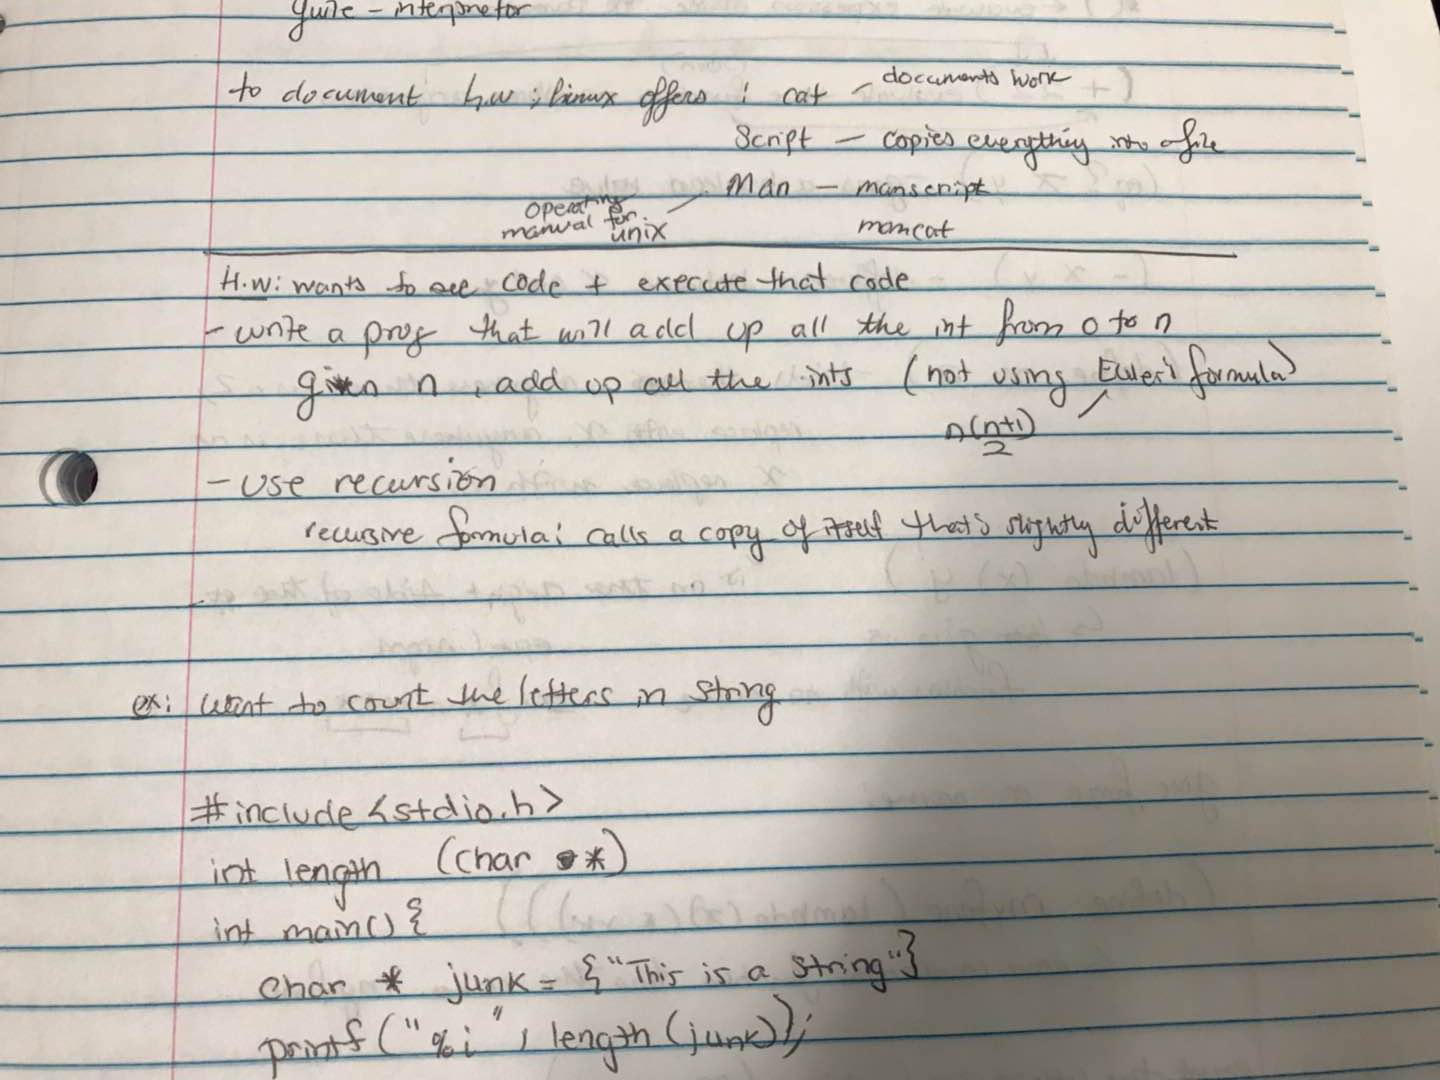 guile - interpretor
to document h.w ; linux offers : cat - documents work
Script - copies everything into a file
Man - manscript
operating manual for unix
mancat
H.W: wants to see code + execute that code
- write a prog that will add up all the int from 0 to n
given n, add up all the ints (not using Euler's formula)
n(n+1)/2
- Use recursion
recursive formula: calls a copy of itself that's slightly different
ex: want to count the letters in string
#include <stdio.h>
int length (char *)
int main() {
char * junk = {"This is a string"}
printf("%i", length(junk));